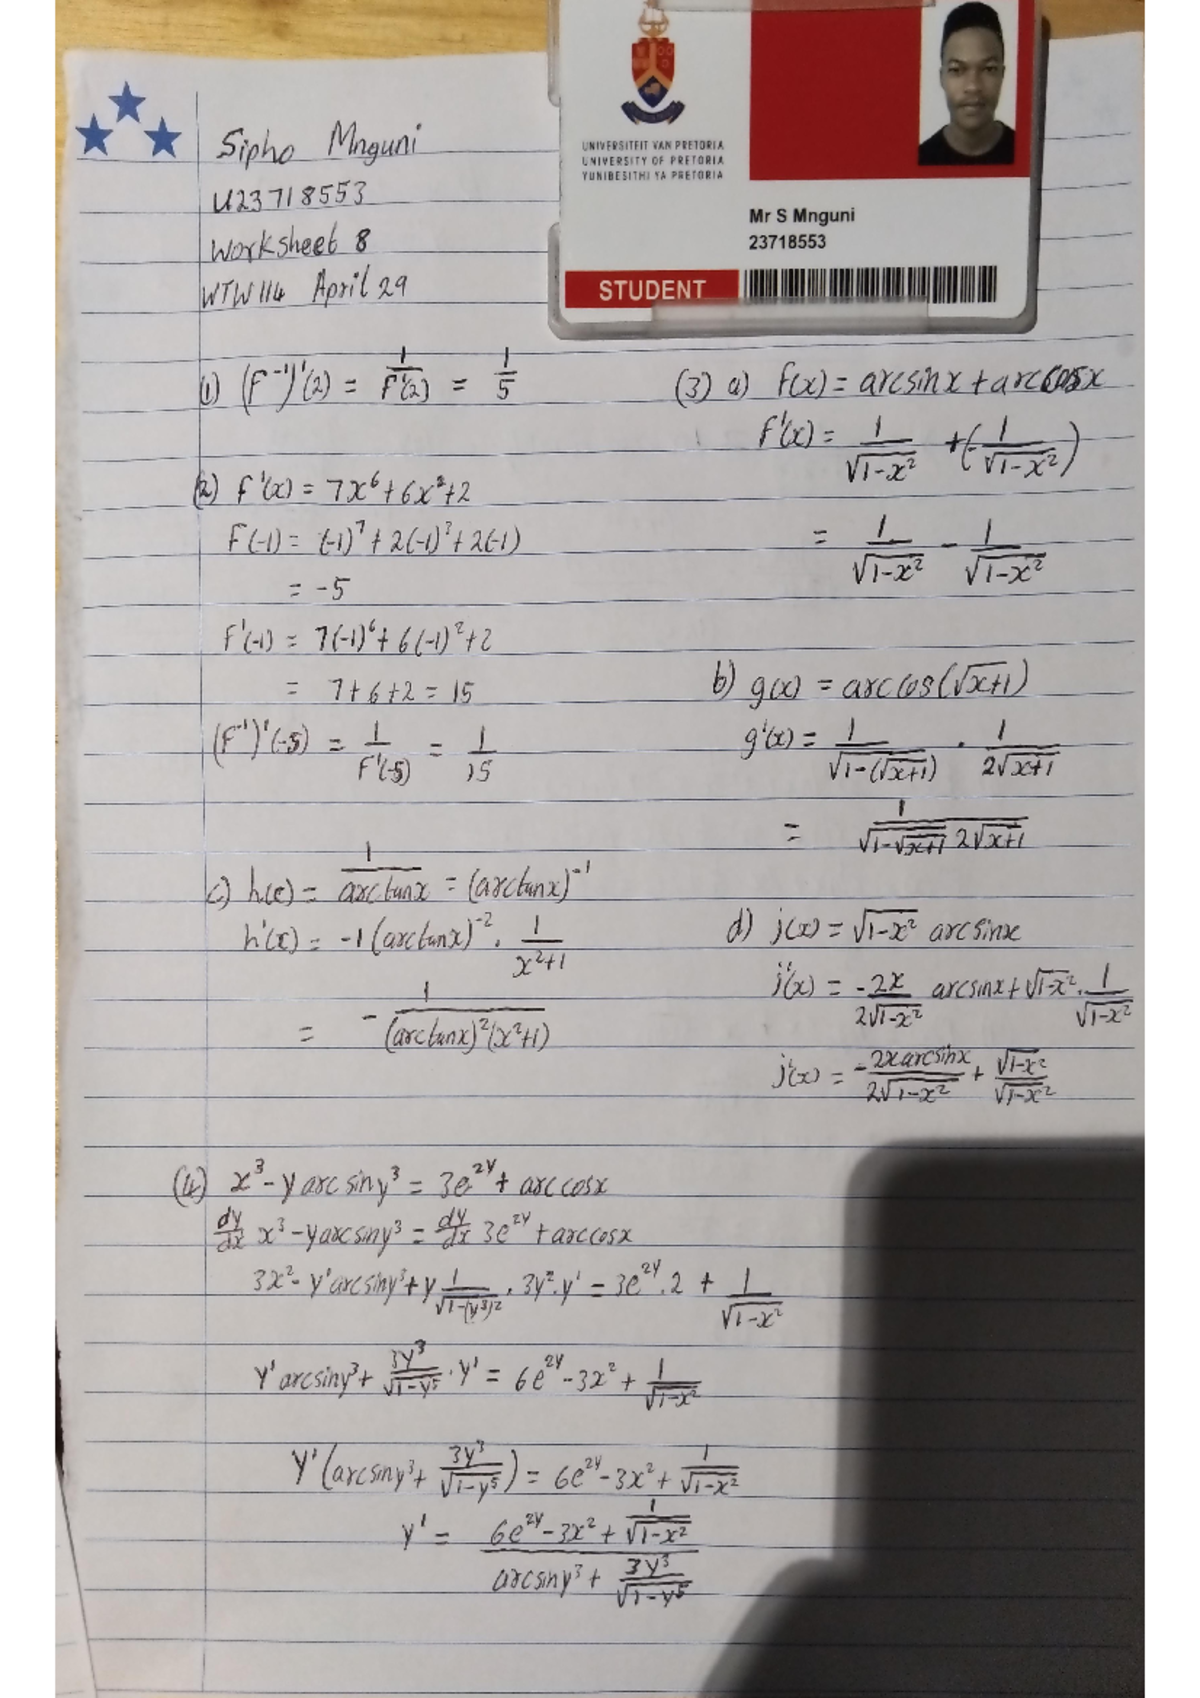 Sipho Mnguni
U23718553
Worksheet 8
WTW114 April 29
UNIVERSITEIT VAN PRETORIA
UNIVERSITY OF PRETORIA
YUNIBESITHI YA PRETORIA
Mr S Mnguni
23718553
STUDENT
(1) (F⁻¹)'(2) = 1/F'(2) = 1/5
(2) F'(x) = 7x⁶ + 6x² + 2
F(-1) = (-1)⁷ + 2(-1)³ + 2(-1)
= -5
F'(-1) = 7(-1)⁶ + 6(-1)² + 2
= 7 + 6 + 2 = 15
(F⁻¹)'(-5) = 1/F'(-5) = 1/15
(3) a) f(x) = arcsinx + arccosx
F'(x) = 1/√(1-x²) + (-1/√(1-x²))
= 1/√(1-x²) - 1/√(1-x²)
b) g(x) = arccos(√(x+1))
g'(x) = 1/√(1-(√(x+1))) · 1/(2√(x+1))
= 1/(√(1-√(x+1)) 2√(x+1))
c) h(x) = 1/arctanx = (arctanx)⁻¹
h'(x) = -1(arctanx)⁻² · 1/(x²+1)
= - 1/((arctanx)²(x²+1))
d) j(x) = √(1-x²) arcsinx
j'(x) = -2x/(2√(1-x²)) arcsinx + √(1-x²) · 1/√(1-x²)
j'(x) = -2xarcsinx/(2√(1-x²)) + √(1-x²)/√(1-x²)
(4) x³ - yarcsiny³ = 3e^(2y) + arccosx
dy/dx x³ - yarcsiny³ = dy/dx 3e^(2y) + arccosx
3x² - y'arcsiny³ + y 1/√(1-(y³)²) · 3y² · y' = 3e^(2y) · 2 + 1/√(1-x²)
y'arcsiny³ + 3y³/√(1-y⁵) · y' = 6e^(2y) - 3x² + 1/√(1-x²)
y'(arcsiny³ + 3y³/√(1-y⁵)) = 6e^(2y) - 3x² + 1/√(1-x²)
y' = (6e^(2y) - 3x² + 1/√(1-x²))/(arcsiny³ + 3y³/√(1-y⁵))